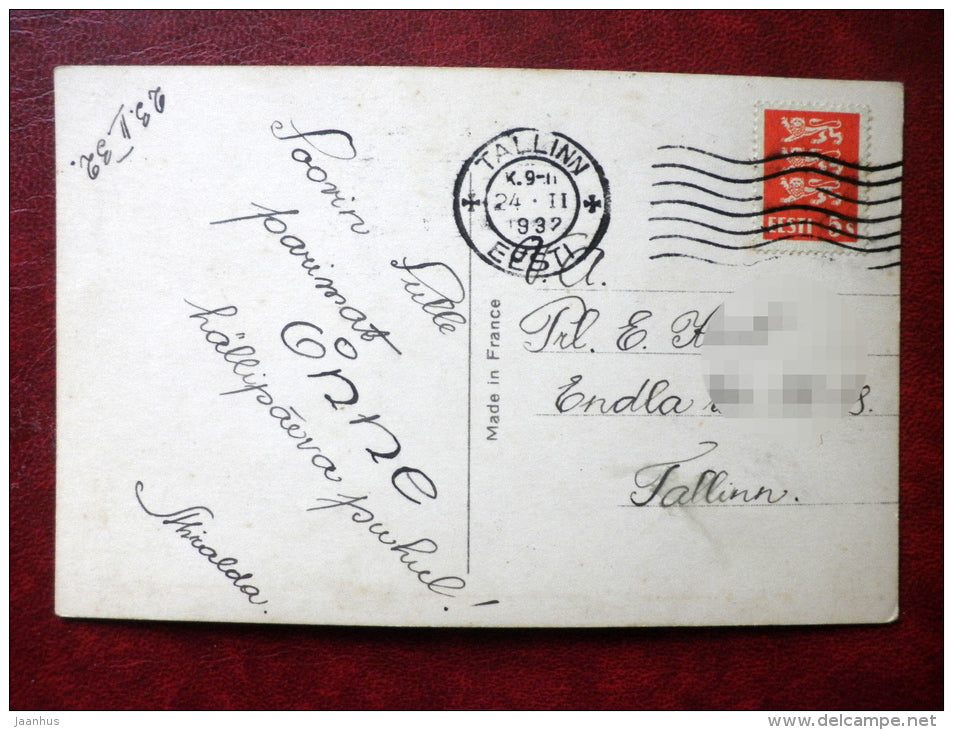 23.II
32.
Soovin Sulle
parimat
õnne
hällipäeva puhul!
TALLINN
K. 9-11
24 · II
1932
EESTI
EESTI 5 S
Made in France
Prl. E.
Endla
Tallinn.
Jaanhus
www.delcampe.net